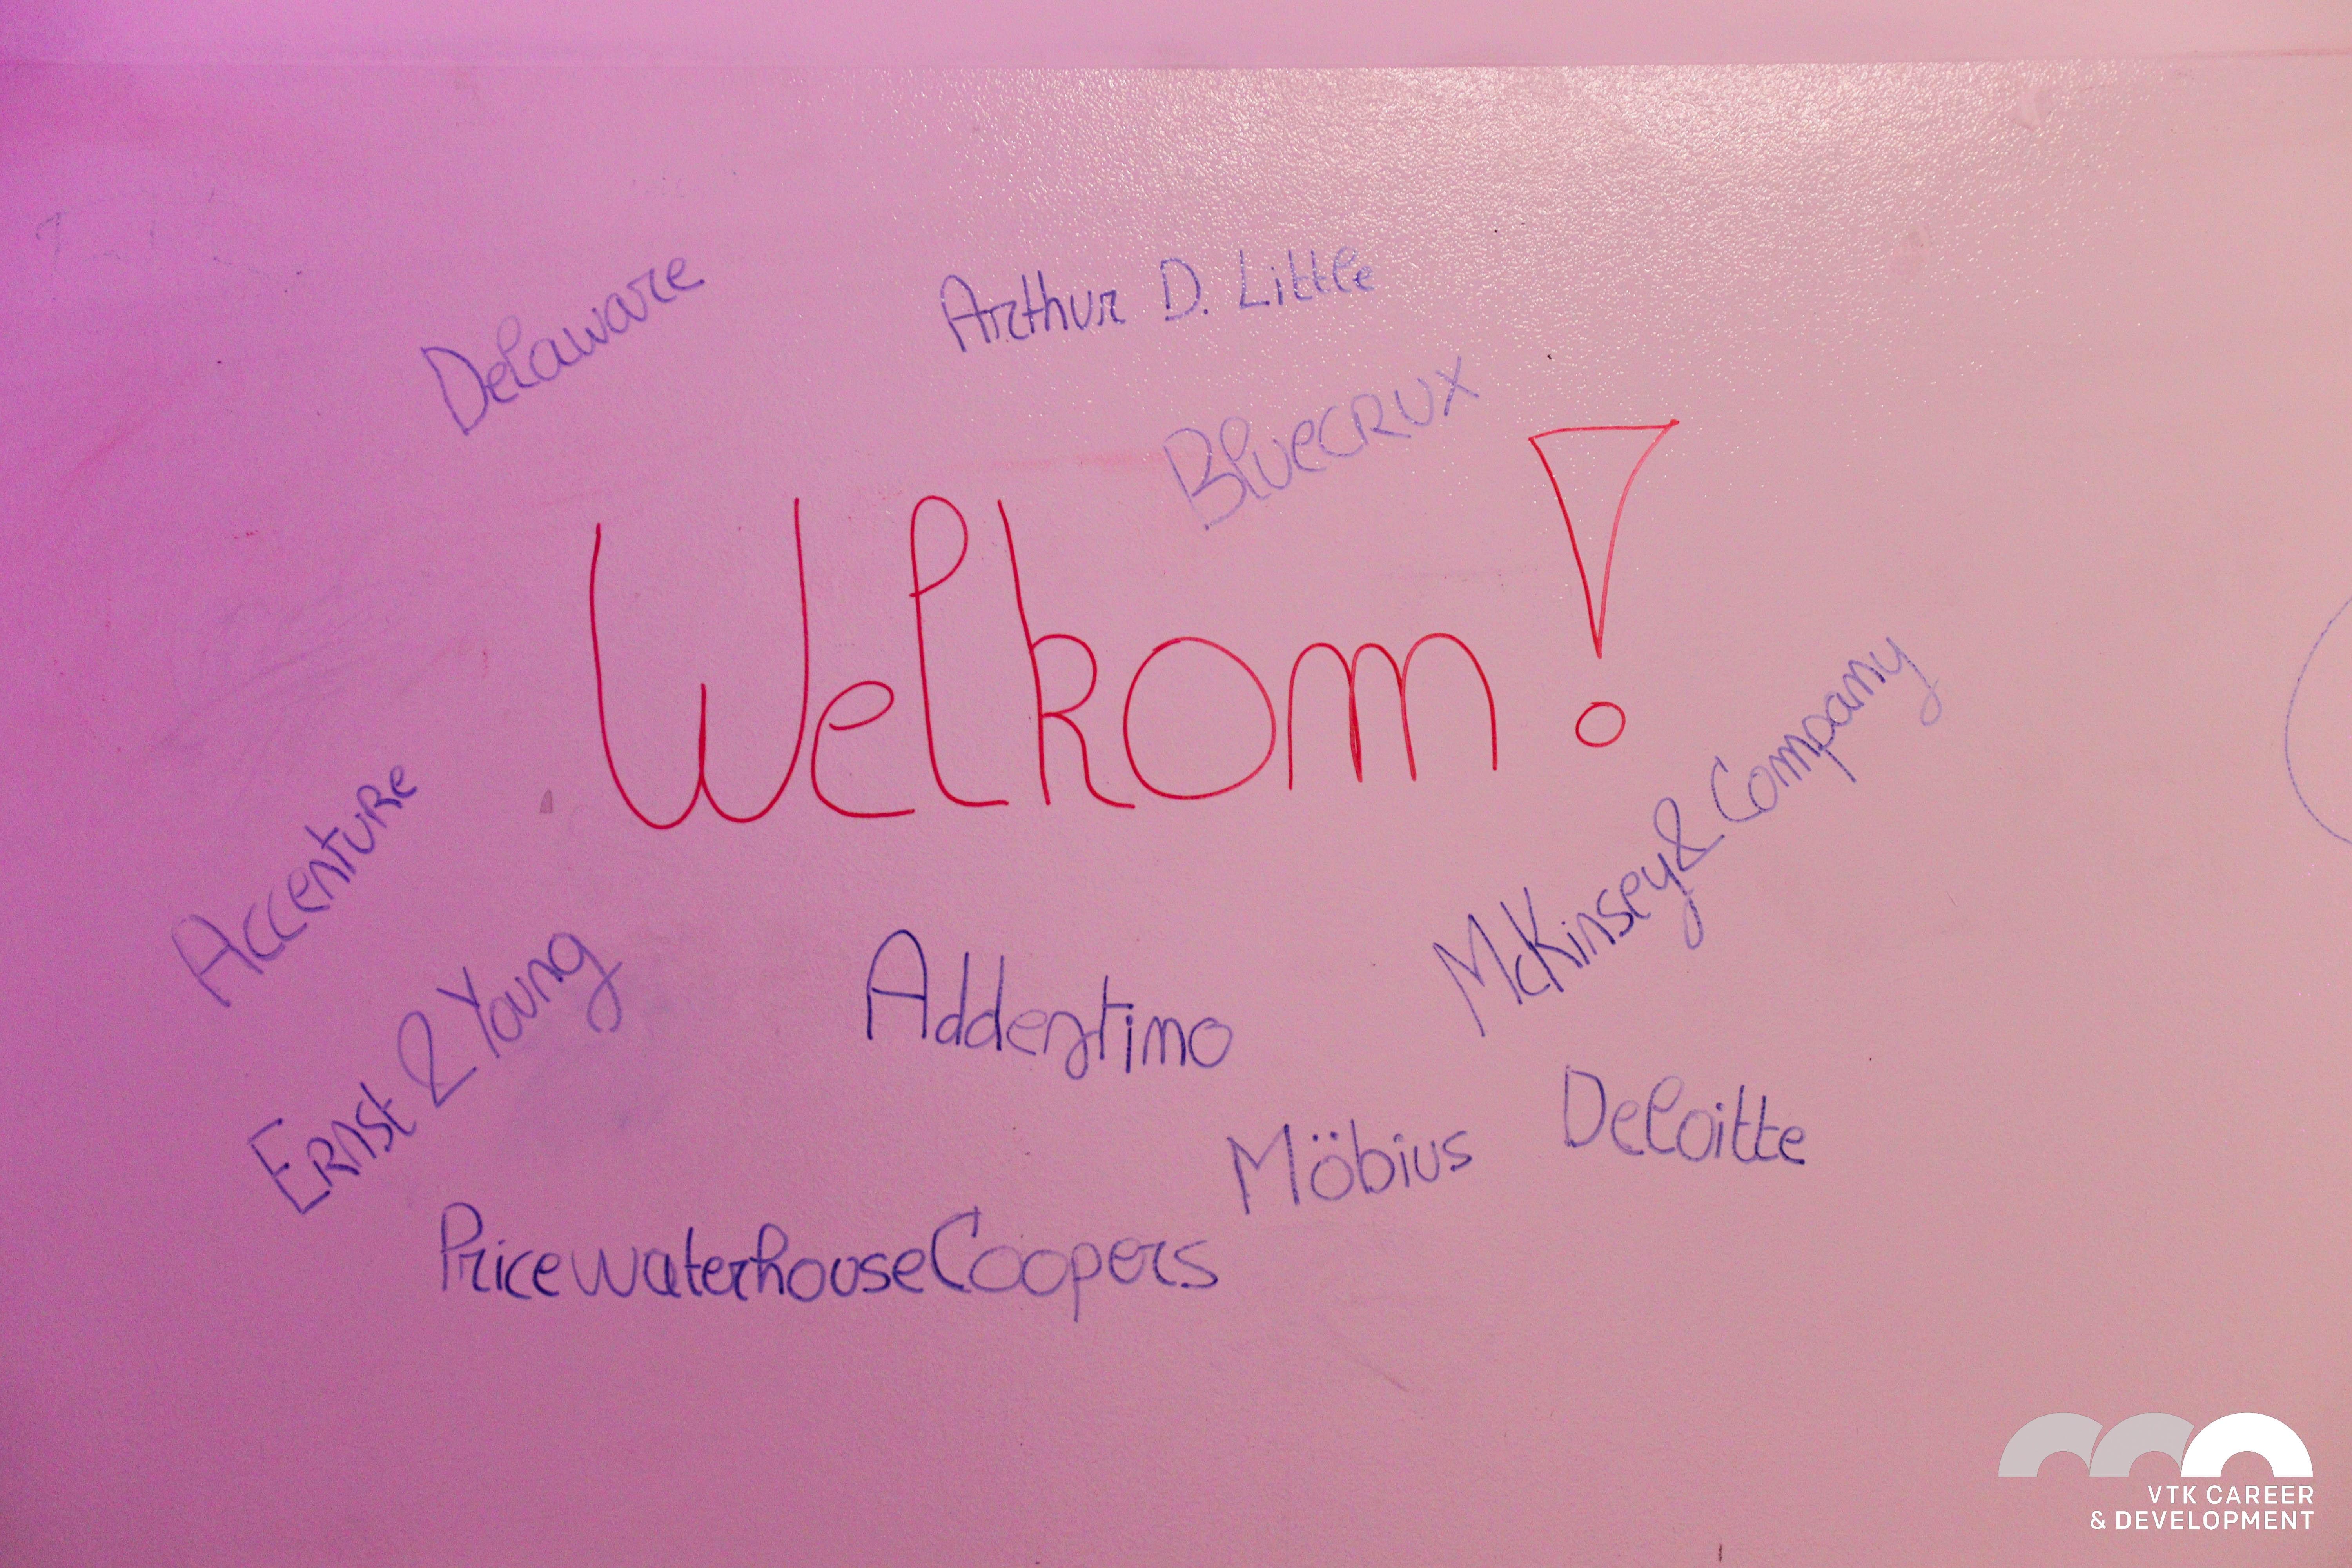 Delaware
Arthur D. Little
Bluecrux
Welkom!
Accenture
McKinsey & Company
Ernst & Young
Addestimo
Möbius
Deloitte
PricewaterhouseCoopers
VTK CAREER
& DEVELOPMENT